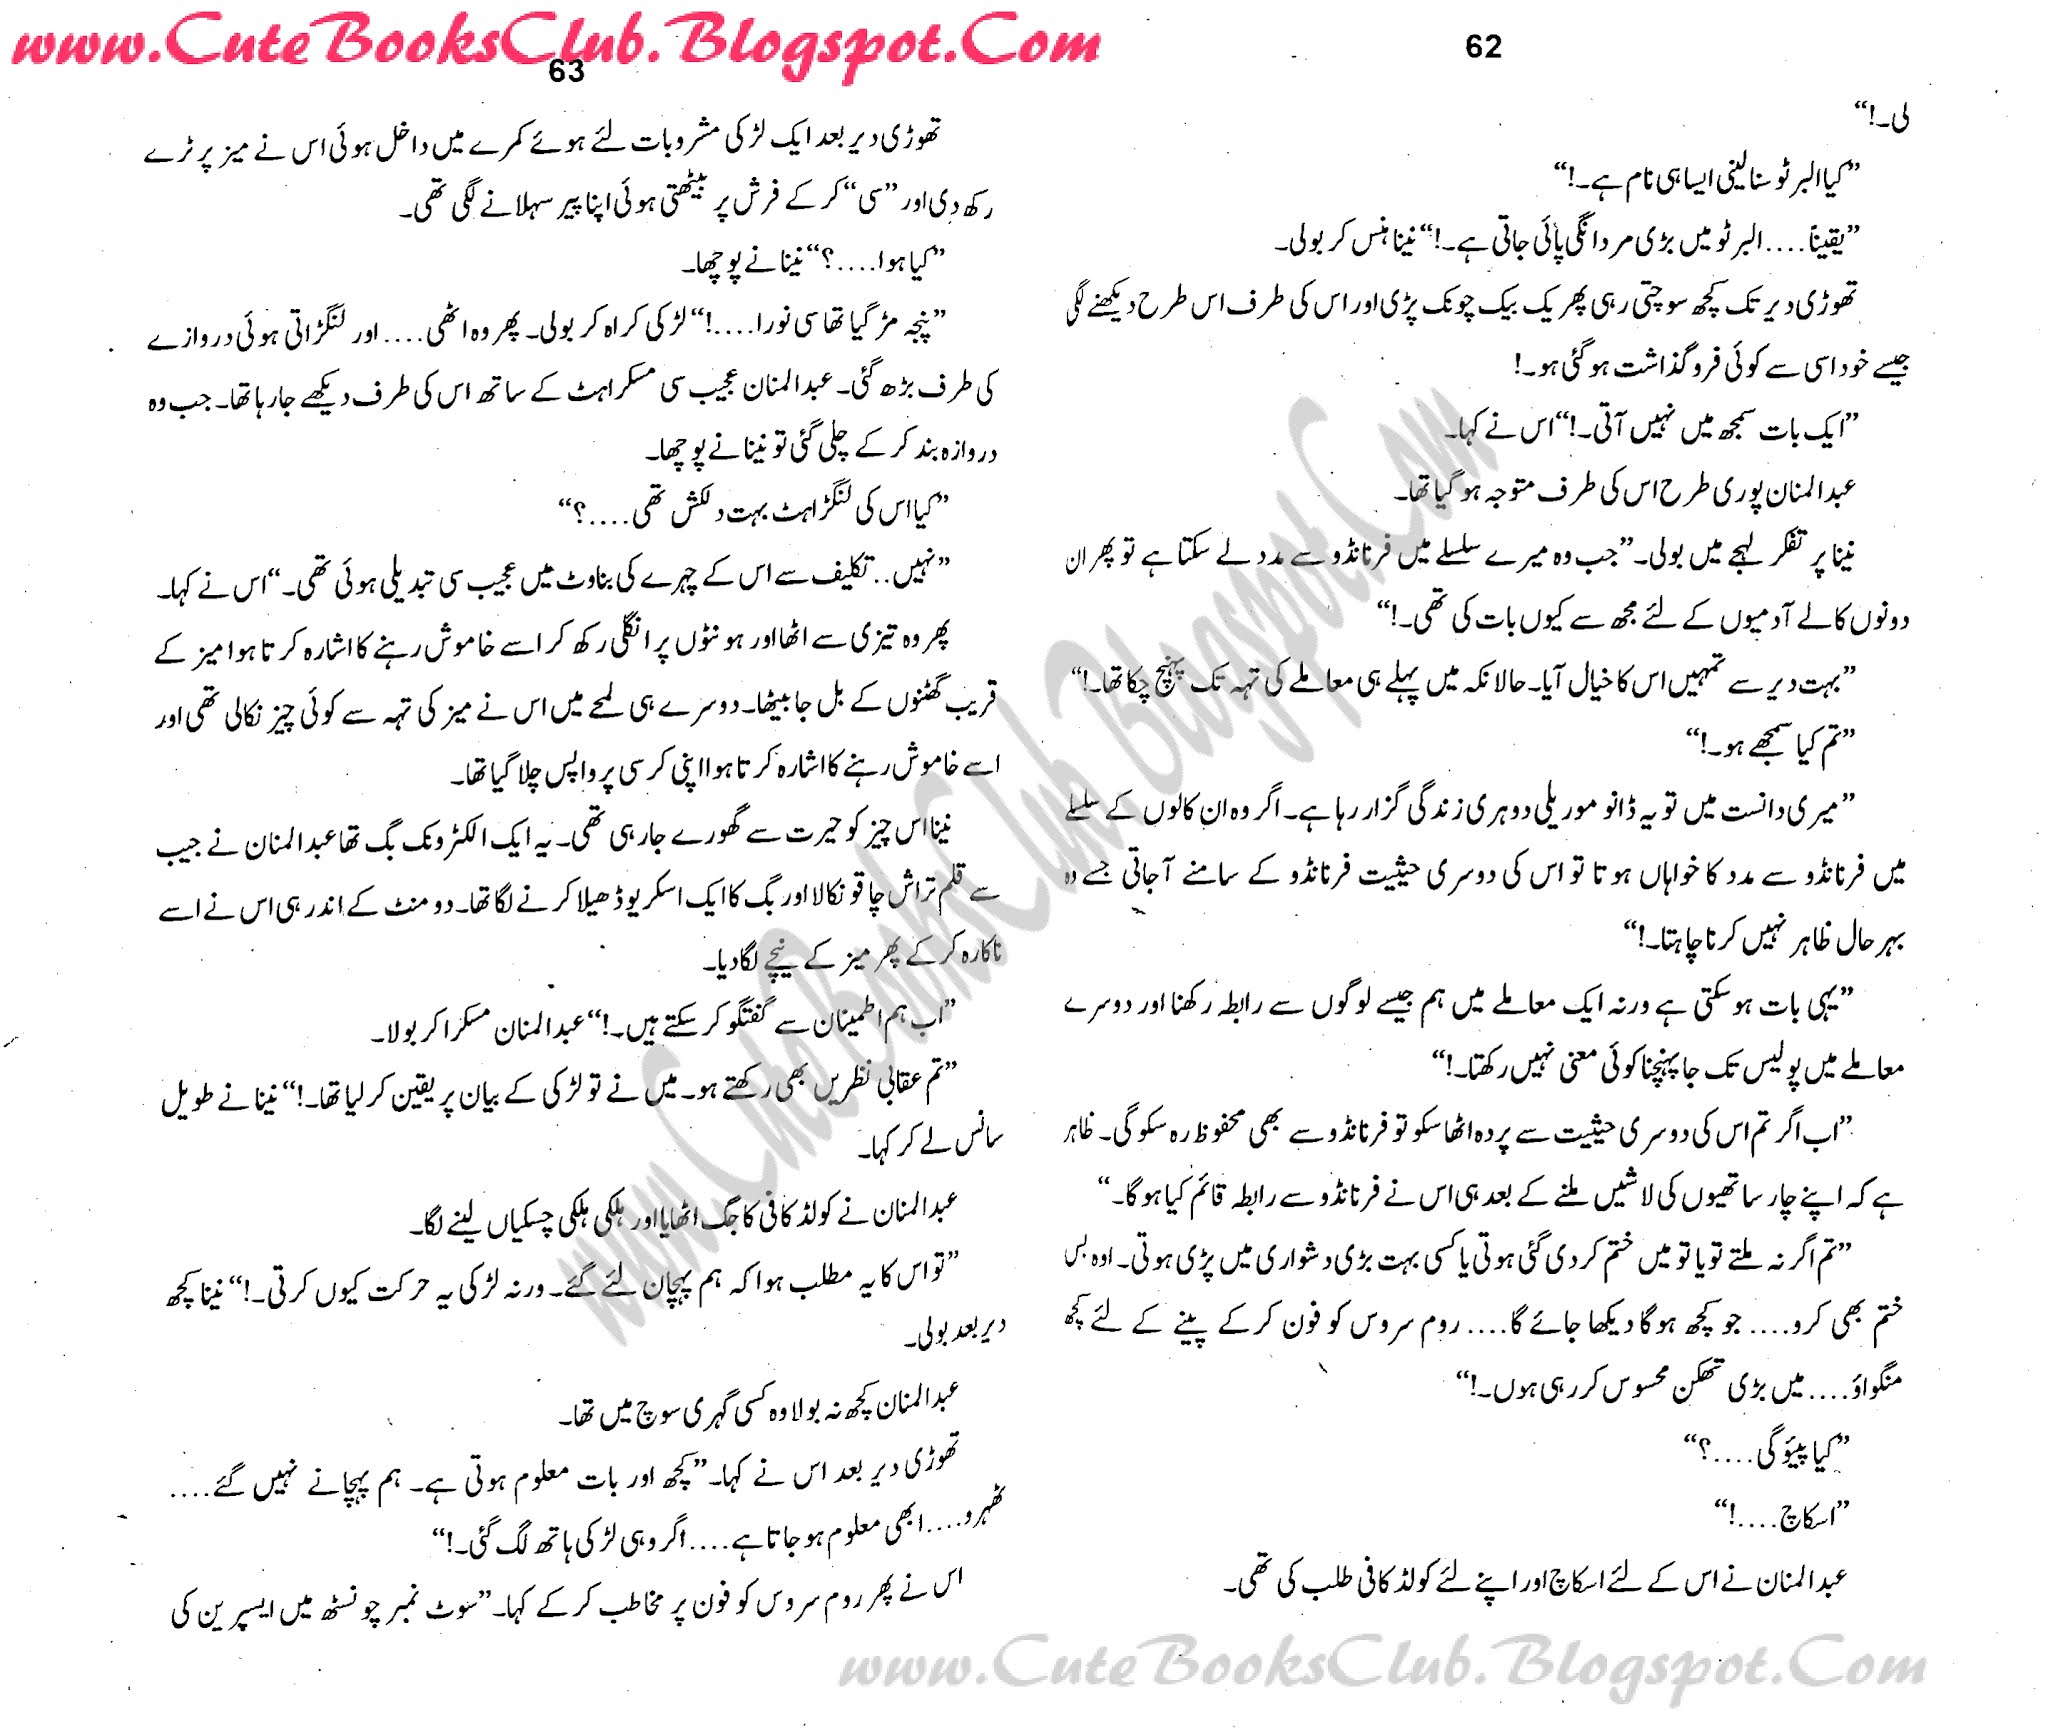 www.CuteBooksClub.Blogspot.Com
62
لی۔!“
”کیا البرٹو سنالینی ایسا ہی نام ہے۔!“
”یقیناً.... البرٹو میں بڑی مردانگی پائی جاتی ہے۔!“ نینا ہنس کر بولی۔
تھوڑی دیر تک کچھ سوچتی رہی پھر یک بیک چونک پڑی اور اس کی طرف اس طرح دیکھنے لگی
جیسے خود اسی سے کوئی فروگذاشت ہو گئی ہو۔!
”ایک بات سمجھ میں نہیں آتی۔!“ اس نے کہا۔
عبدالمنان پوری طرح اس کی طرف متوجہ ہو گیا تھا۔
نینا پر تفکر لہجے میں بولی۔ ”جب وہ میرے سلسلے میں فرنانڈو سے مدد لے سکتا ہے تو پھر ان
دونوں کالے آدمیوں کے لئے مجھ سے کیوں بات کی تھی۔!“
”بہت دیر سے تمہیں اس کا خیال آیا۔ حالانکہ میں پہلے ہی معاملے کی تہہ تک پہنچ چکا تھا۔!“
”تم کیا سمجھے ہو۔!“
”میری دانست میں تو یہ ڈانو موریلی دوہری زندگی گزار رہا ہے۔ اگر وہ ان کالوں کے سلسلے
میں فرنانڈو سے مدد کا خواہاں ہوتا تو اس کی دوسری حیثیت فرنانڈو کے سامنے آجاتی جسے وہ
بہر حال ظاہر نہیں کرنا چاہتا۔!“
”یہی بات ہو سکتی ہے ورنہ ایک معاملے میں ہم جیسے لوگوں سے رابطہ رکھنا اور دوسرے
معاملے میں پولیس تک جا پہنچنا کوئی معنی نہیں رکھتا۔!“
”اب اگر تم اس کی دوسری حیثیت سے پردہ اٹھا سکو تو فرنانڈو سے بھی محفوظ رہ سکو گی۔ ظاہر
ہے کہ اپنے چار ساتھیوں کی لاشیں ملنے کے بعد ہی اس نے فرنانڈو سے رابطہ قائم کیا ہو گا۔“
”تم اگر نہ ملتے تو یا تو میں ختم کر دی گئی ہوتی یا کسی بہت بڑی دشواری میں پڑی ہوتی۔ اوہ بس
ختم بھی کرو.... جو کچھ ہو گا دیکھا جائے گا.... روم سروس کو فون کر کے پینے کے لئے کچھ
منگواؤ.... میں بڑی تھکن محسوس کر رہی ہوں۔!“
”کیا پیئو گی....؟“
”اسکاچ....!“
عبدالمنان نے اس کے لئے اسکاچ اور اپنے لئے کولڈ کافی طلب کی تھی۔
63
تھوڑی دیر بعد ایک لڑکی مشروبات لئے ہوئے کمرے میں داخل ہوئی اس نے میز پر ٹرے
رکھ دی اور ”سی“ کر کے فرش پر بیٹھتی ہوئی اپنا پیر سہلانے لگی تھی۔
”کیا ہوا....؟“ نینا نے پوچھا۔
”پنجہ مڑ گیا تھا سی نورا....!“ لڑکی کراہ کر بولی۔ پھر وہ اٹھی.... اور لنگڑاتی ہوئی دروازے
کی طرف بڑھ گئی۔ عبدالمنان عجیب سی مسکراہٹ کے ساتھ اس کی طرف دیکھے جا رہا تھا۔ جب وہ
دروازہ بند کر کے چلی گئی تو نینا نے پوچھا۔
”کیا اس کی لنگڑاہٹ بہت دلکش تھی....؟“
”نہیں.. تکلیف سے اس کے چہرے کی بناوٹ میں عجیب سی تبدیلی ہوئی تھی۔“ اس نے کہا۔
پھر وہ تیزی سے اٹھا اور ہونٹوں پر انگلی رکھ کر اسے خاموش رہنے کا اشارہ کرتا ہوا میز کے
قریب گھٹنوں کے بل جا بیٹھا۔ دوسرے ہی لمحے میں اس نے میز کی تہہ سے کوئی چیز نکالی تھی اور
اسے خاموش رہنے کا اشارہ کرتا ہوا اپنی کرسی پر واپس چلا گیا تھا۔
نینا اس چیز کو حیرت سے گھورے جا رہی تھی۔ یہ ایک الکٹرونک بگ تھا عبدالمنان نے جیب
سے قلم تراش چاقو نکالا اور بگ کا ایک اسکریو ڈھیلا کرنے لگا تھا۔ دو منٹ کے اندر ہی اس نے اسے
ناکارہ کر کے پھر میز کے نیچے لگا دیا۔
”اب ہم اطمینان سے گفتگو کر سکتے ہیں۔!“ عبدالمنان مسکرا کر بولا۔
”تم عقابی نظریں بھی رکھتے ہو۔ میں نے تو لڑکی کے بیان پر یقین کر لیا تھا۔!“ نینا نے طویل
سانس لے کر کہا۔
عبدالمنان نے کولڈ کافی کا جگ اٹھایا اور ہلکی ہلکی چسکیاں لینے لگا۔
”تو اس کا یہ مطلب ہوا کہ ہم پہچان لئے گئے۔ ورنہ لڑکی یہ حرکت کیوں کرتی۔!“ نینا کچھ
دیر بعد بولی۔
عبدالمنان کچھ نہ بولا وہ کسی گہری سوچ میں تھا۔
تھوڑی دیر بعد اس نے کہا۔ ”کچھ اور بات معلوم ہوتی ہے۔ ہم پہچانے نہیں گئے....
ٹھہرو.... ابھی معلوم ہو جاتا ہے.... اگر وہی لڑکی ہاتھ لگ گئی۔!“
اس نے پھر روم سروس کو فون پر مخاطب کر کے کہا۔ ”سوٹ نمبر چونسٹھ میں ایسپرین کی
www.CuteBooksClub.Blogspot.Com
www.CuteBooksClub.Blogspot.Com